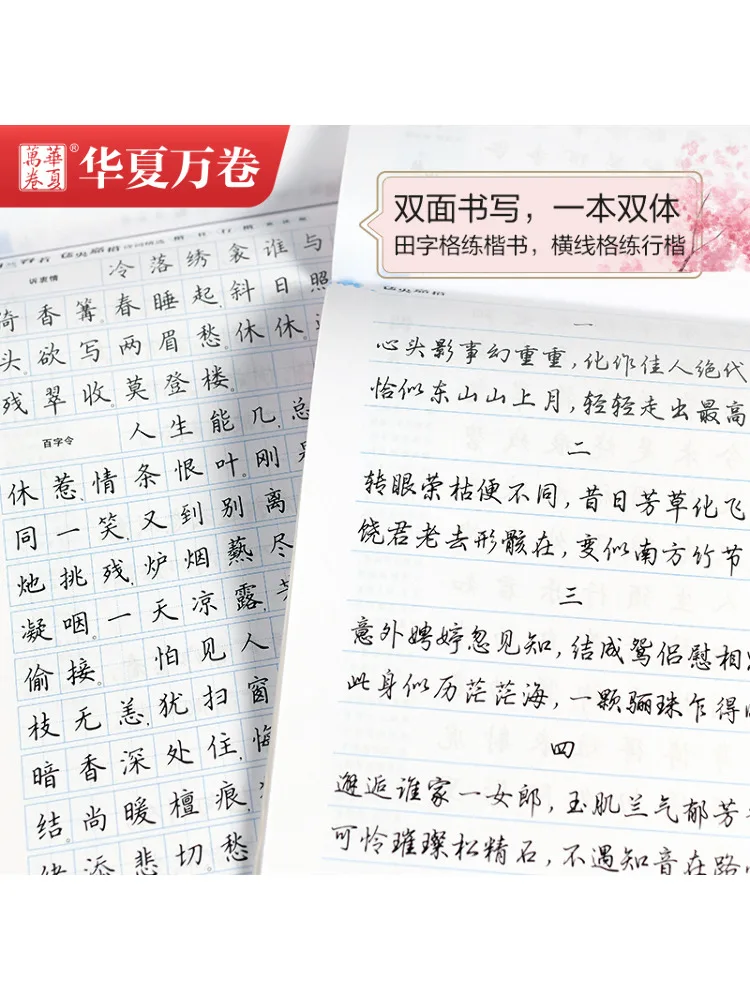 華夏萬卷®
华夏万卷
双面书写，一本双体
田字格练楷书，横线格练行楷
诉衷情
冷落绣衾谁与
倚香篝。春睡起，斜日照
头。欲写两眉愁。休休。
残翠收。莫登楼。
百字令
人生能几，总
休惹、情条恨叶。刚是
同一笑，又到别离
灺挑残，炉烟爇尽
凝咽。一天凉露，芳
偷接。怕见人
枝无恙，犹扫窗
暗香深处住，悔
结。尚暖檀痕，
绪添悲切。愁
一
心头影事幻重重，化作佳人绝代
恰似东山山上月，轻轻走出最高
二
转眼荣枯便不同，昔日芳草化飞
饶君老去形骸在，变似南方竹节
三
意外娉婷忽见知，结成鸳侣慰相思
此身似历茫茫海，一颗骊珠乍得时
四
邂逅谁家一女郎，玉肌兰气郁芳
可怜璀璨松精石，不遇知音在路